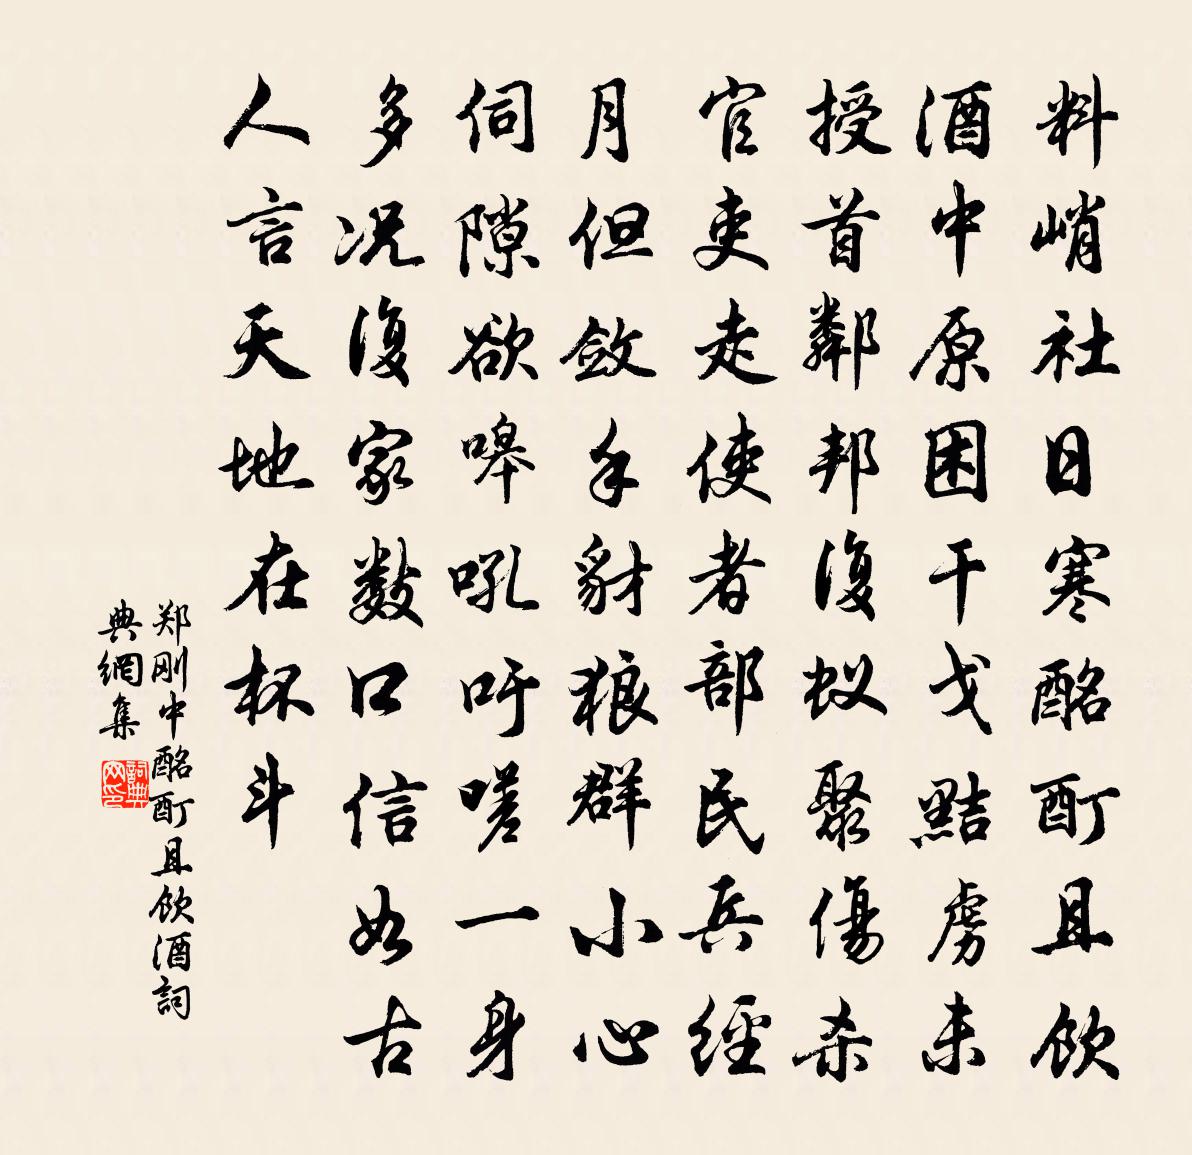 料峭社日寒酩酊且飲
酒中原困干戈黠虜未
授首鄰邦復蚁聚傷杀
官吏走使者部民兵經
月但斂手豺狼群小心
伺隙欲嗥吼吁嗟一身
多况復家數口信如古
人言天地在杯斗
郑刚中酩酊且飲酒詞
典網集
詞典